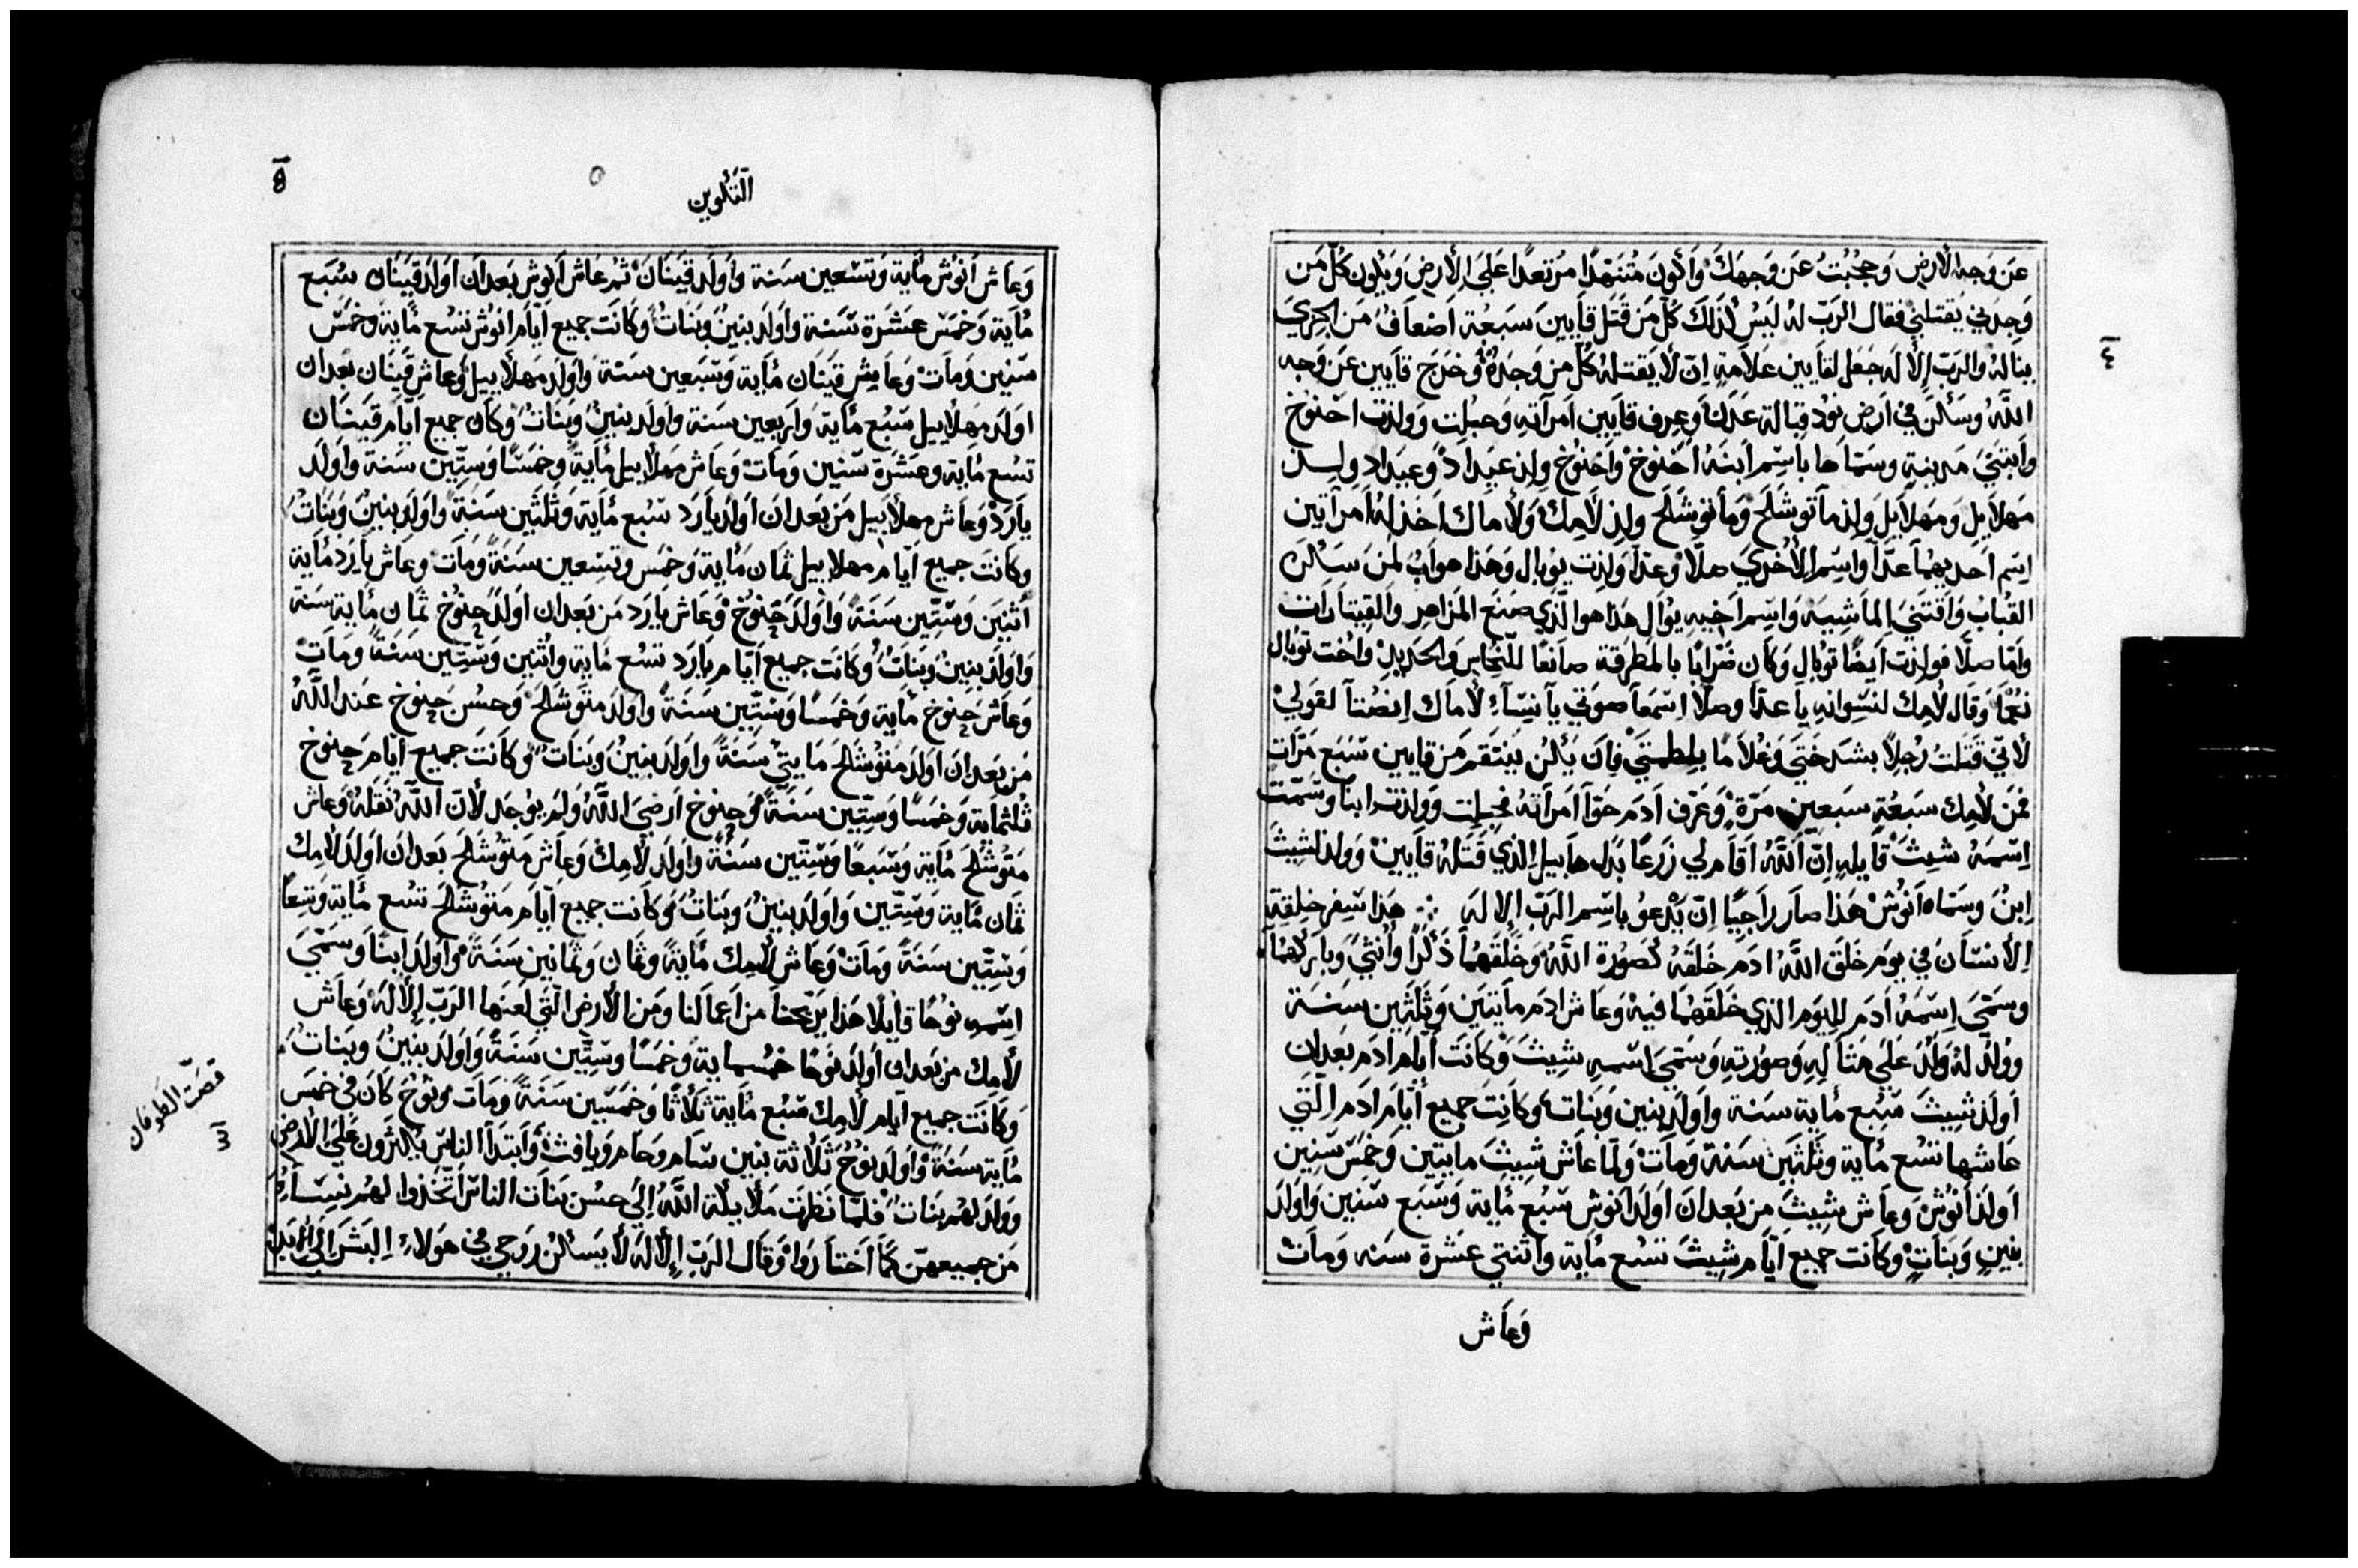 عَن وَجه الأرضِ وَحُجُبتُ عَن وَجهَكَ وَأكُونَ مُتنَهّدًا مُرتعدًا عَلَى الأرضِ وَيكُون كلّ مَن
وَجِدَني يَقتلني فقال الرَبّ لهُ لَيسَ كَذلِكَ كُلّ مَن قَتَل قاَيينَ سَبعَة اَضعَافُ مَن الجرى
ينالهُ والرَبّ الالَه جَعَل لقاَيين عَلاَمةٍ اِنّ لاَ يَقتلهُ كُلّ من وَجَدَهُ وَخرَجَ قاَيين عَن وَجه
اللَّهُ وَسَكنَ في اَرَض نوُد قبالة عَدَن وَعرِف قاَيين اَمرَآتهِ وَحبلَت وَولدَت احنوُخ
وَأبتنَى مَدينة وسَمّاها باسِم اَبنهُ اَحنُوخْ وَاَحنوُخ ولِدَ عَيدادْ وعيَداد ولِد
مَهلاَيل وَمهلاَيل ولِد مآتوُشَلَح وَماتوُشلَح ولِد لاَمِكْ وَلاماك اَخذ لهُ اَمرآتين
اِسم احَديهمَا عَدّا وَاسِم الأخرَي صَلّا وعَدّا وَلِدت يوُبال وَهَذا هو اَبُ لمَن سَكنَ
القبابُ وَاَقتنَى المَاشيَه وَاسِم اَخيهِ يوُاَل هذا هو الّذي صَنعَ المَزاهر وَالقيثاَرات
وَامّا صِلّا فولدَت اَيضًا توُبال وَكاَن ضَرَابًا بالمَطرَقة صاَنعًا للنّحاسِ وَالحَديدِ وَاخت توُبال
نَعْماَ وَقال لاَمِك لنسِوانهِ يا عَدّا وصلّا اسِمعَا صَوتي ياَ نسِآء لاَماك اِنصُتآ لقولي
لأنيّ قَتلتُ رَجلاً بشدختي وَغلامًا بلطمتي فاِن يَكُن يَنتقم مَن قايين سَبعَ مَرّات
فَمن لاَمِك سَبعَةٍ سَبعين مَرّة وَعَرف اَدمَ حَوّا اَمراَتهُ فحَبلت وَولدَت ابنًا وسَمّت
اِسمَهُ شيثَ قاَيلهِ اِنّ اَللَّهُ اَقاَم لي زَرعًا بَدل هاَبيل الذي قَتلهُ قاَيينْ وَولد لشيثَ
اِبنُ وسَمّاه اَنوُشْ هَذا صاَر راَجيًا اِنّ يَدْعوُ باسِم الرَبّ الالهَ ∴ هَذا سِفر خلقة
الأنسَان في يومَ خلَق اللَّهُ ادَم خَلقَهُ كصُورَة اللَّهُ وَخَلقهُمآ ذَكَرًا وَاُنثى وَبارَكهُمآ
وسَمّى اِسِمَهُ اَدَم لليَوم الذي خَلقهُمَا فيهْ وَعاَش ادَم مآيتَين وَثَلثين سَنة
وَولد لهُ وَلدَ عَلى مَثاَلهِ وَصورَتهِ وَسَمّى اِسمهِ شيثَ وَكاَنتَ اَياّم ادَم بَعد ان
اَولد شيثَ سَبعُ مأيَة سَنة وَاَولَدَ بنِين وَبَناتْ وَكانَت جَميع أيّام اَدَم التّي
عَاشها تسُع مأية وثَلثَين سَنة وَماَتْ وَلَمّا عاَش شيثَ مايتين وَخمسَ سِنين
اَولدَ اَنوُشْ وَعاَش شيثَ مِن بَعد انَ اَولد اَنوُش سَبُع مأية وَسَبع سنين وَاَولد
بَنينِ وَبَناتٍ وكانت جميع اَيّام شيثَ تسُع مأية وَاثنتي عَشرة سَنه وَماَتْ
وَعاَش
التَكوين
٥
وَعاَش اَنوُش مأية وَتسّعين سَنة وَاولَد قيَنانْ ثمُ عاَش اَنوُش بَعد ان اَولَد قيَنان سُبَع
مأية وَخَمسَ عشَرة سَنة وَاَولَد بنينُ وبَناتُ وكاَنت جميع اَيّام انوُش تسُع مأية وَخمسَ
سنين وَماَت وعَاش قيَنان مأية وَسَبعين سَنة وَاَولد مَهلأييل وَعاش قيَنان بَعد ان
اَولد مَهلأييل سَبع مأية وَاربعين سَنة وَاولَد بنينُ وبَناتْ وَكاَن جميع ايّاَم قيَنان
تسُع مأية وعَشَرة سنين وَمات وَعاش مَهلأييل مأيةً وَخمسًا وَسِتّين سَنة وَاَولدَ
ياَرَدْ وَعاَش مهلأييل مَن بَعد ان اَولد ياَرَد سَبع مأية وَثلثَين سَنة وَاَولَد بنينُ وَبَناتُ
وكانَت جميع اَيّام مهلاَييل ثمان مَأية وَخمَس وَتسِعين سَنةً وَماَت وعاش ياَرد مأية
اثنيَن وَسِتّين سَنةً وَاَولد حنوُخْ وَعاَش ياَرَد مَن بَعد ان اَولدَ حنوُخ ثمان مأية سَنة
وَاَولد بنينُ وبَناتُ وكاَنت جميع اَيّام ياَرَد تسُع مأية وَاثنين وَسِتّين سَنةً وَماَت
وَعاَش حنوُخ مأية وَخمسًا وَسِتّين سَنةْ وَاَولَد متوُشَلح وَحسُن حنوُخ عَند اللَّهُ
مَن بَعد انَ اَولد مَتوُشَلح مَايتيْ سَنةً وَاَولد بنينُ وَبَناتْ وكاَنَت جميع اَيّامَ حنوُخ
ثلثمأية وَخمسًا وَسِتّين سَنةً وَحنوُخ اَرضىَ اللَّهُ وَلم يوُجد لأنّ اَللَّهُ نَقلهُ وَعاش
مَتوُشلَح مأية وَسَبعًا وَسِتّين سَنةً وَاَولَد لاَمِك وَعاَش مَتوُشَلح بَعد ان اَولد لأمِك
ثمان مأية وَسِتّين وَاَولَد بنينُ وبَناتُ وَكاَنت جميع اَيّام مَتوُشَلح تسُع مأية وَتِسعًا
وَسِتّين سَنةً وَماَتْ وَعاَش لاَمِك مأيةً وثمَان وَثمانين سَنةً وَاَولدَ ابنًا وسَمّىَ
اِسمهِ نوُحًا قاَيلًا هَذا يرَيحنا من اَعمالنا ومَن الأرض التّي لعَنها الرَبّ الإلهَ وَعاَش
لأمِك من بَعد ان اَولد نوُحًا خَمسماية وَخمَسًا وسِتّين سَنةً وَاَولَد بنينُ وَبَناتُ
وَكاَنت جميع اَيّام لأمِك سَبُع مأية ثلاَثًا وَخمسين سَنةً وَماَت وَنوُح كاَن في خمسَ
مأية سَنةْ وَاَولد نوُح ثلاَثة بنين سَام وَحاَم وَيافثْ وَاَبتَداَ الناسّ يُكثرُون عَلى الأرَض
وَولد لهُم بنَاتُ فلمّا نظرَت مَلأيكة اللَّهُ إلى حسُن بنَات الناسّ اَتخَّذوا لهُم نسِاءً
مَن جميعهِنّ كمَا اَختاَروُا وَقاَل الرَبّ الإلَه لاَ يَسكُن روُحي في هَولاء البَشَر اَلى الأبَد
قصّت الطوفان